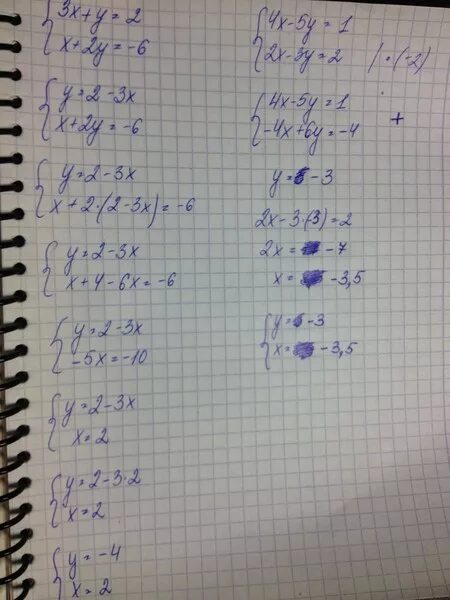 3x+y=2
x+2y=-6
y=2-3x
x+2y=-6
y=2-3x
x+2·(2-3x)=-6
y=2-3x
x+4-6x=-6
y=2-3x
-5x=-10
y=2-3x
x=2
y=2-3·2
x=2
y=-4
x=2
4x-5y=1
2x-3y=2 /·(-2)
4x-5y=1
-4x+6y=-4 +
y=-3
2x-3·(3)=2
2x=-7
x=-3,5
y=-3
x=-3,5